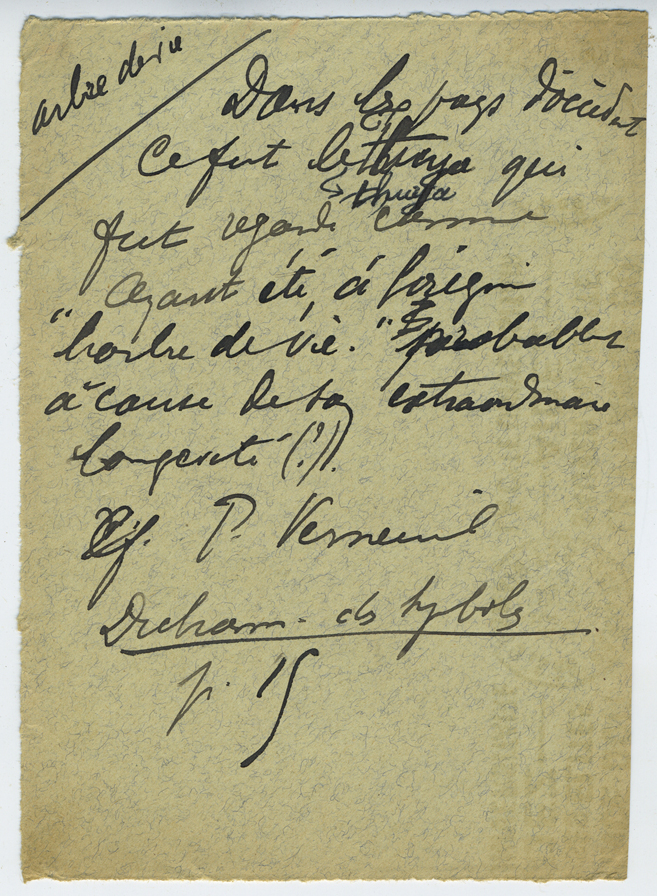 arbre de vie
Dans les pays d'occident
Ce fut le thuya qui
thuya
fut regardé comme
ayant été, à l'origin
"l'arbre de vie." probablet
à cause de sa extraordinaire
longevité (?!).
Cf. P. Verneuil
Diction. ds sybols
p. 15